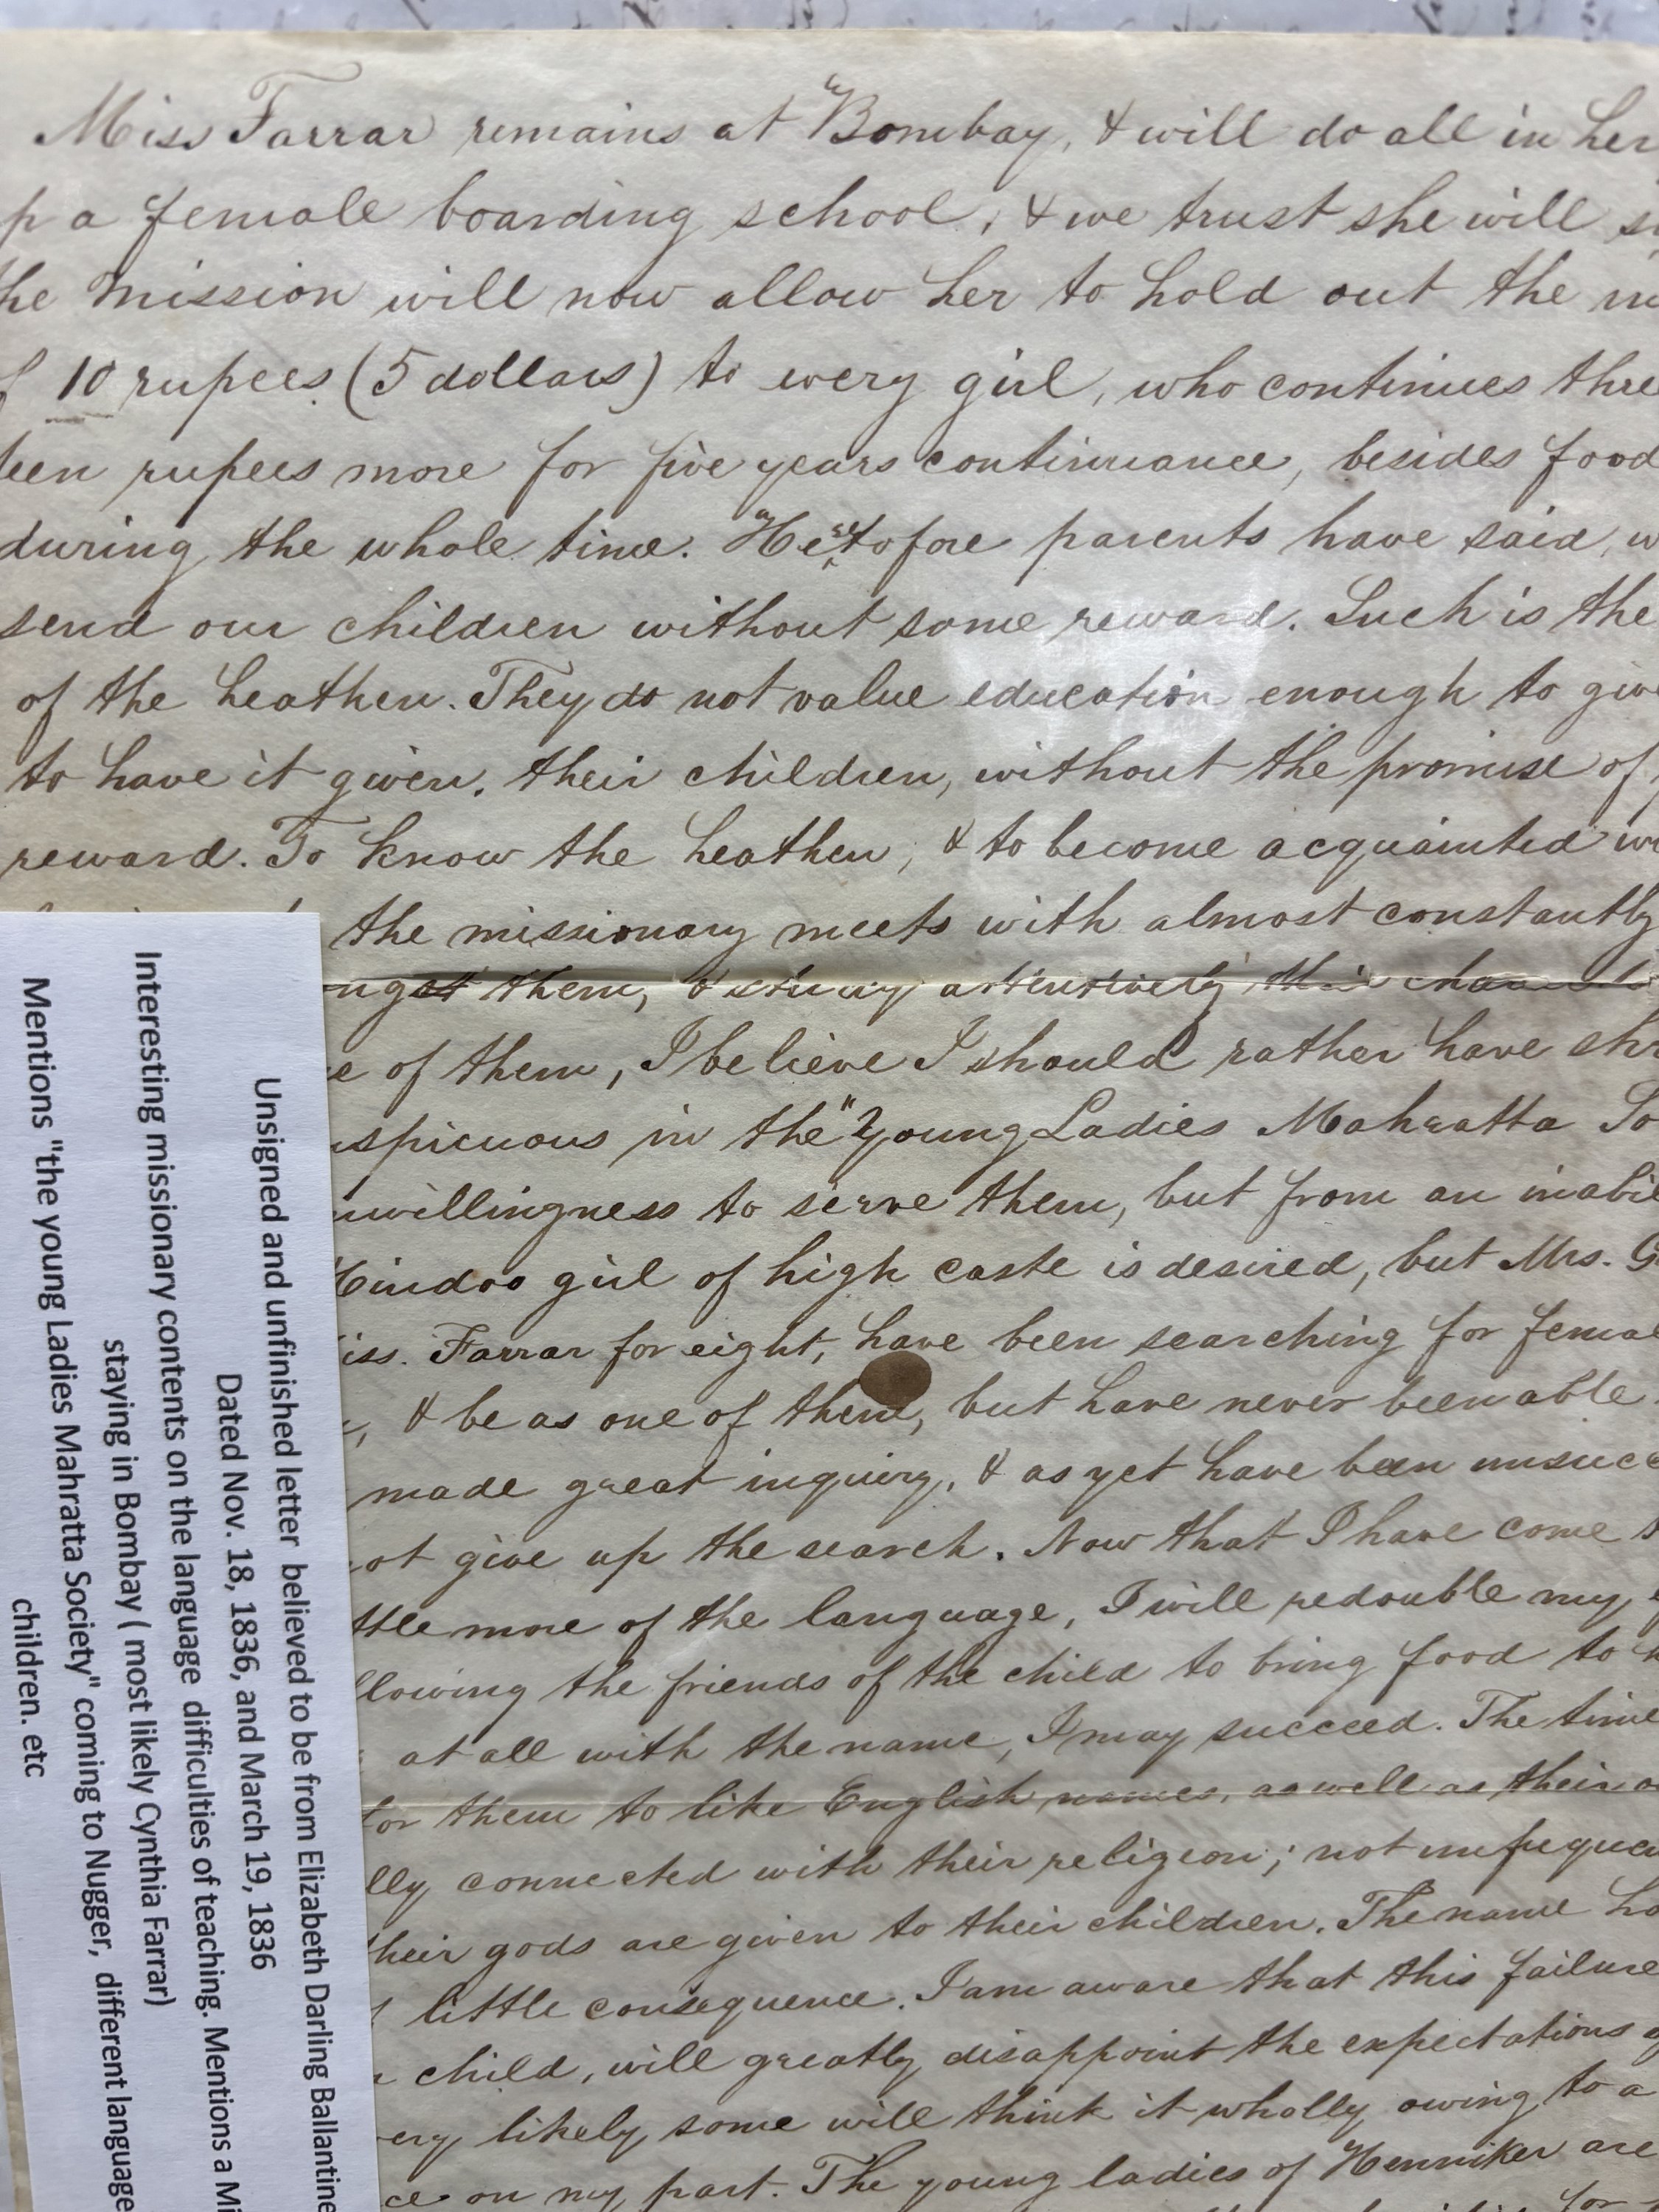 Miss Farrar remains at Bombay, & will do all in her
p a female boarding school, & we trust she will s
he mission will now allow her to hold out the in
f 10 rupees (5 dollars) to every girl, who continues three
teen rupees more for five years continuance, besides food
during the whole time. Heretofore parents have said, w
send our children without some reward. Such is the
of the heathen. They do not value education enough to give
to have it given, their children, without the promise of
reward. To know the heathen, & to become acquainted wi
the missionary meets with almost constantly
ngst them, & study attentively their
e of them, I believe I should rather have shr
spicuous in the "young Ladies Mahratta So
nwillingness to serve them, but from an inabil
Hindoo girl of high caste is desired, but Mrs. G
iss. Farrar for eight, have been searching for femal
, & be as one of them, but have never been able
made great inquiry, & as yet have been unsucce
not give up the search. Now that I have come t
ttle more of the language, I will redouble my
llowing the friends of the child to bring food to h
at all with the name, I may succeed. The time
for them to like English names, as well as their o
lly connected with their religion; not unfrequen
their gods are given to their children. The name ho
little consequence. I am aware that this failure
child, will greatly disappoint the expectations o
ery likely some will think it wholly owing to a
ce on my part. The young ladies of Henniker are
for
Unsigned and unfinished letter believed to be from Elizabeth Darling Ballantine
Dated Nov. 18, 1836, and March 19, 1836
Interesting missionary contents on the language difficulties of teaching. Mentions a Mi
staying in Bombay ( most likely Cynthia Farrar)
Mentions "the young Ladies Mahratta Society" coming to Nugger, different language
children. etc